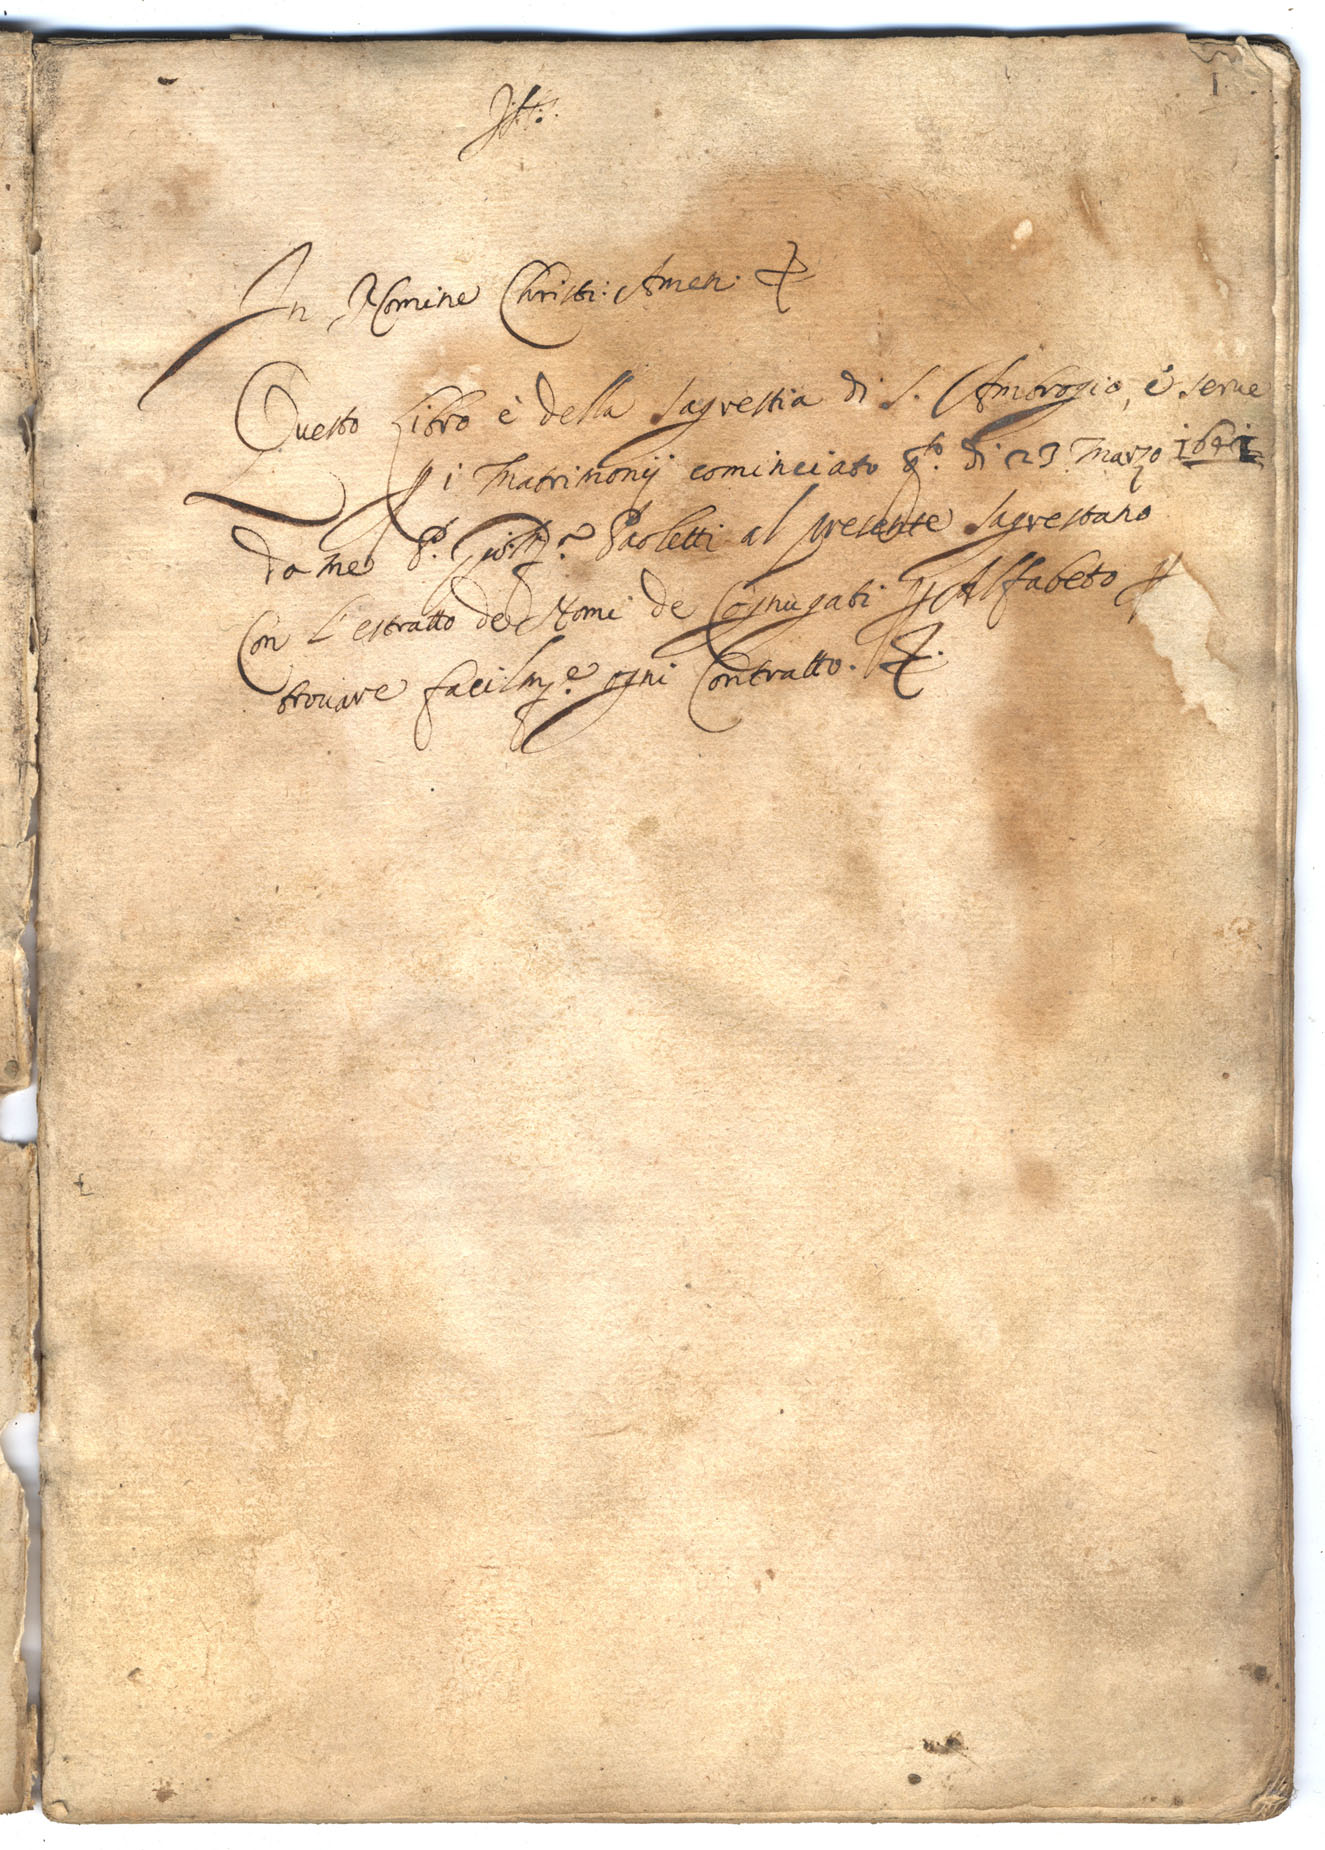 1
In Nomine Christi. Amen.
Questo Libro è della sagrestia di S. Ambrogio, è serue
i Matrimonij cominciato q.to di 23 Marzo 1641
da me P. Gio: Paoletti al presente sagrestano
Con l'estratto de Nomi de Cognugati Alfabeto
trouare facilm.e ogni Contratto.